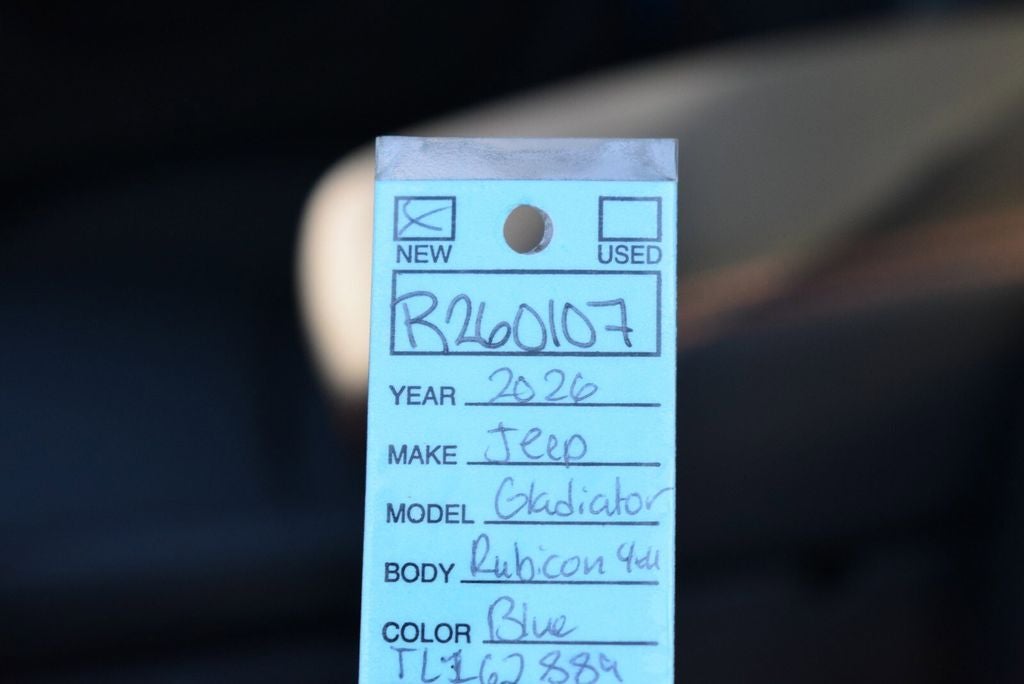 NEW USED
R260107
YEAR 2026
MAKE Jeep
MODEL Gladiator
BODY Rubicon 4x4
COLOR Blue
TL162889